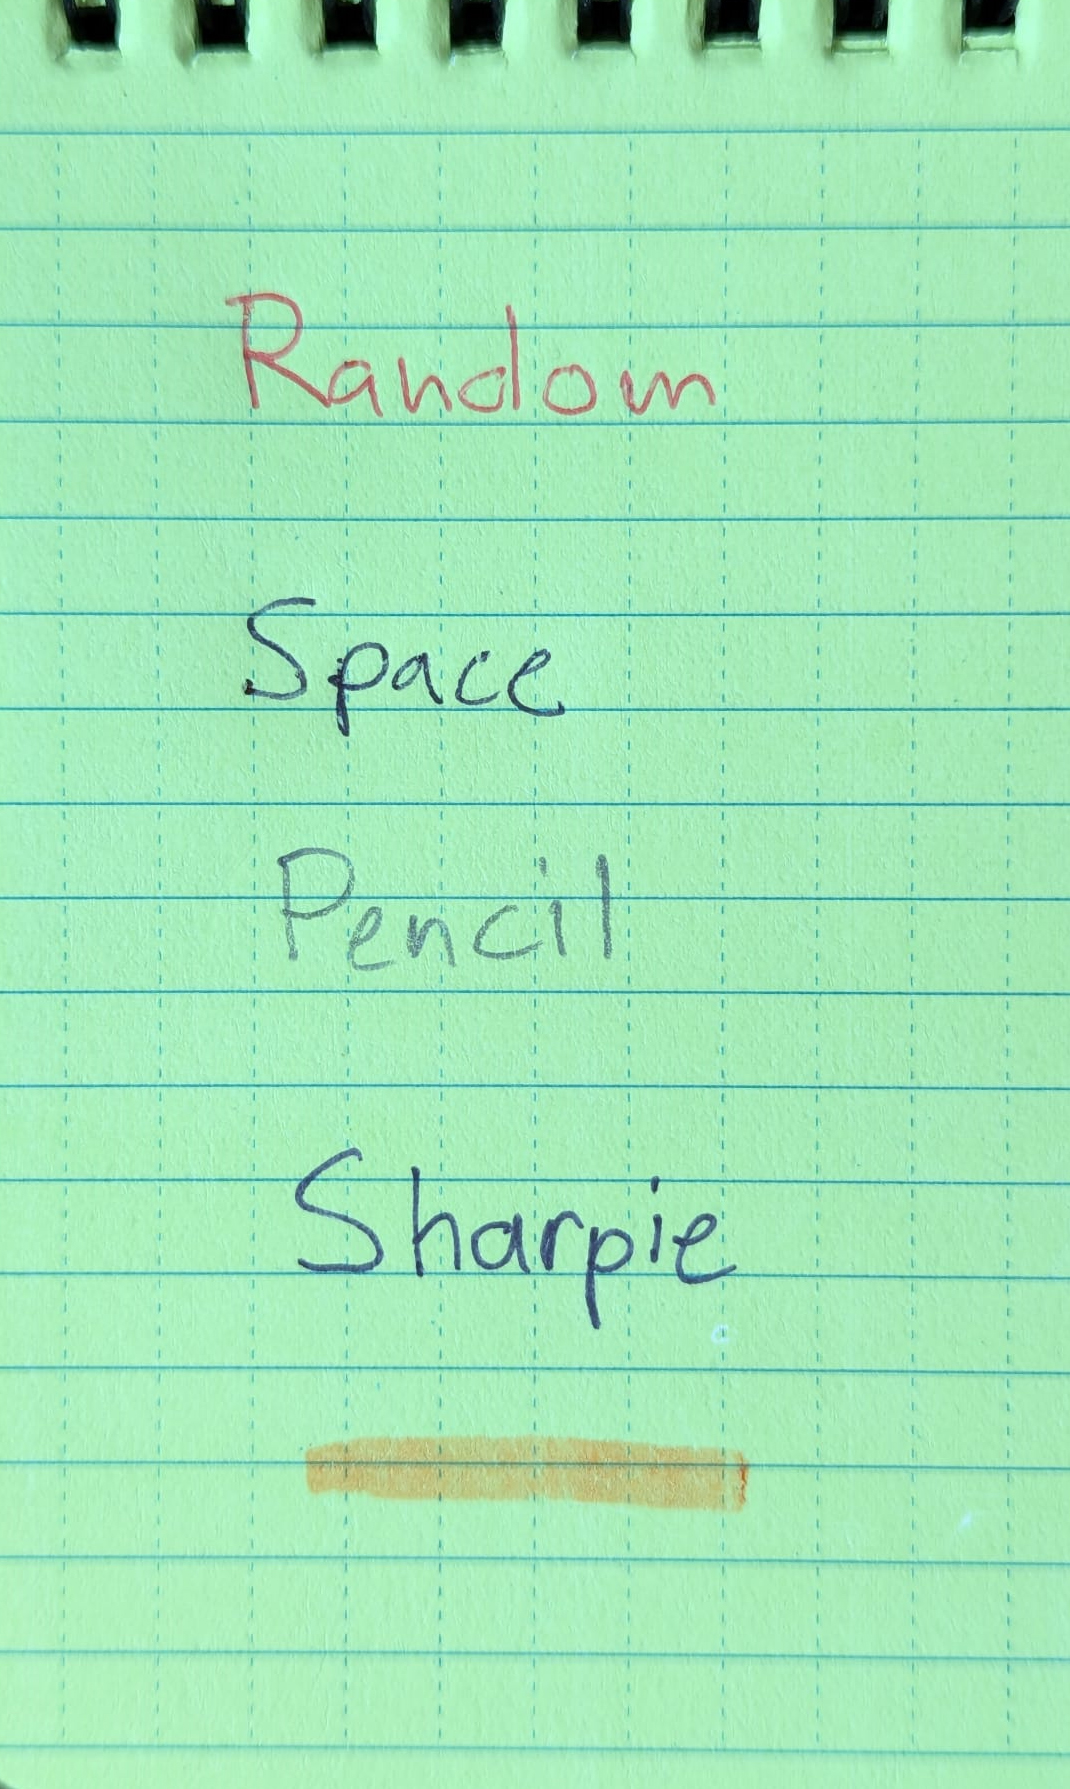 Random
Space
Pencil
Sharpie